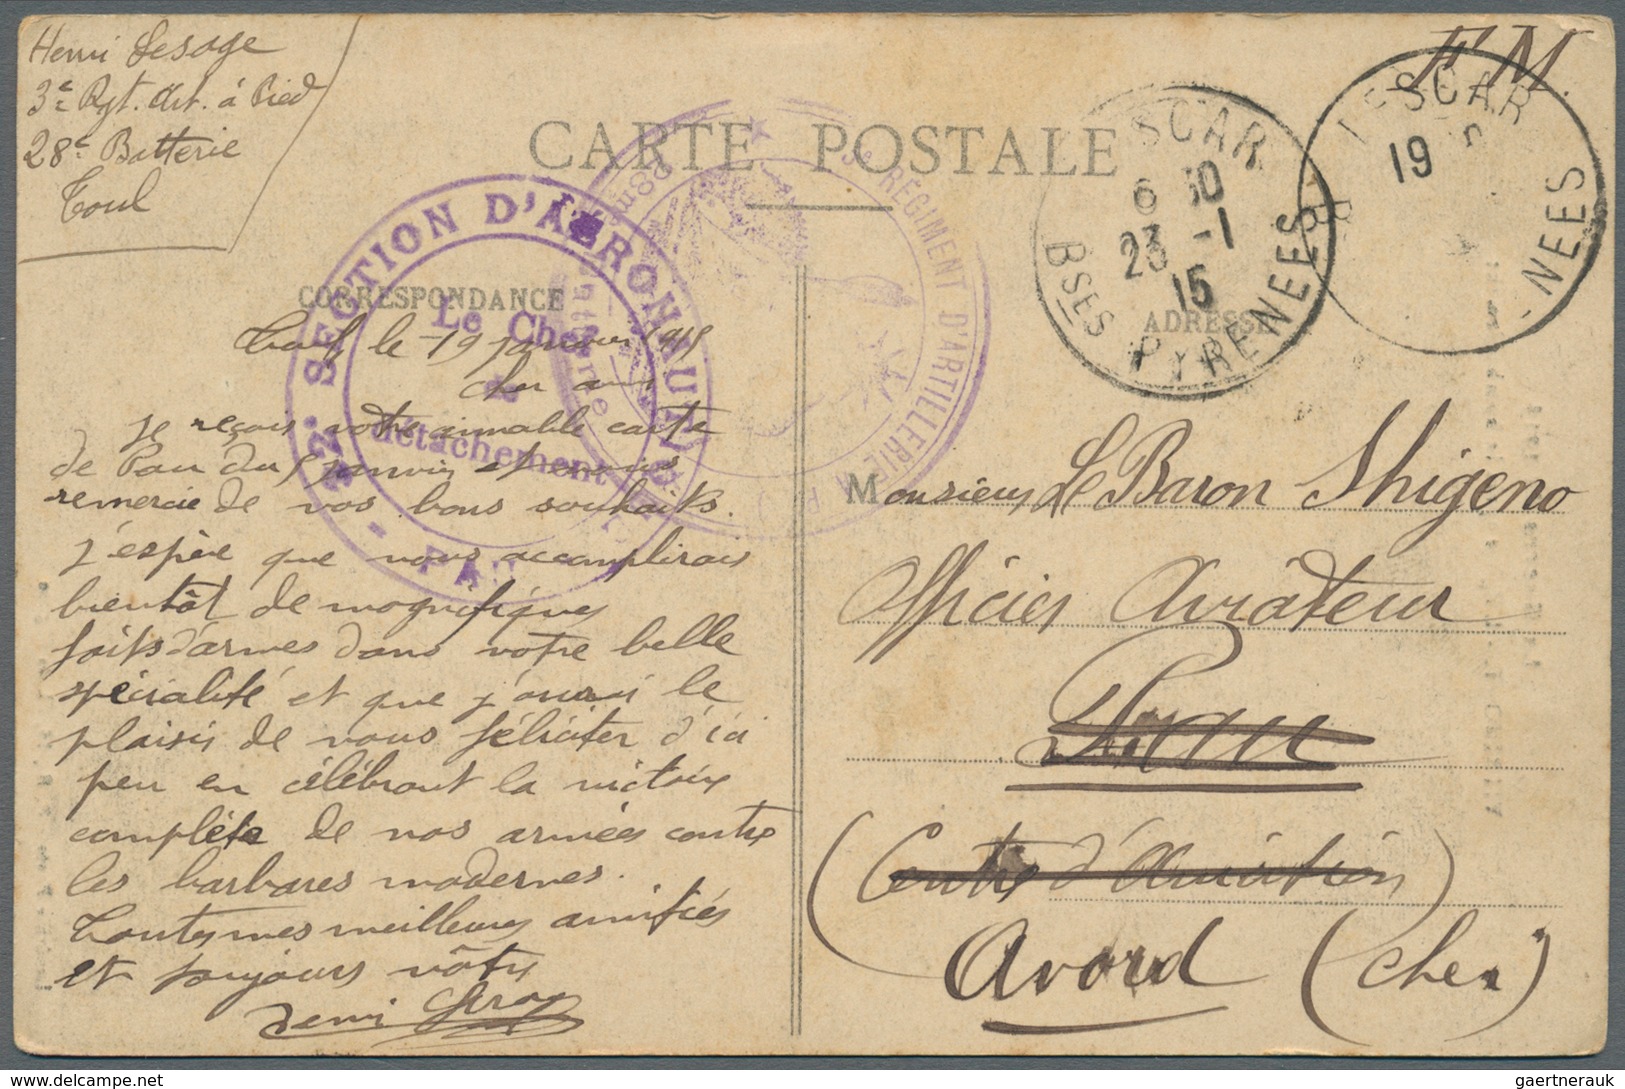 Henri Lesage
3e Rgt. Art. à Pied
28e Batterie
Toul
F. M.
CARTE POSTALE
CORRESPONDANCE
ADRESSE
SECTION D'AÉRONAU
Le Chef
détachement
PAU
RÉGIMENT D'ARTILLERIE À P
28me Batterie
LESCAR
6 30
23 -1
15
BSES PYRENEES
LESCAR
19
NEES
Toul, le 19 janvier 1915
Cher ami
Je reçois votre aimable carte
de Pau du 5 janvier et vous
remercie de vos bons souhaits.
J'espère que vous accomplirais
bientôt de magnifiques
faits d'armes dans votre belle
spécialité et que j'aurai le
plaisir de vous féliciter d'ici
peu en célébrant la victoire
complète de nos armées contre
les barbares modernes.
Toutes mes meilleures amitiés
et toujours vôtre
Henri Lesage
Monsieur Le Baron Shigeno
Officier Aviateur
Pau
(Centre d'Aviation)
Avord (Cher)
gaertnerauk / www.delcampe.net